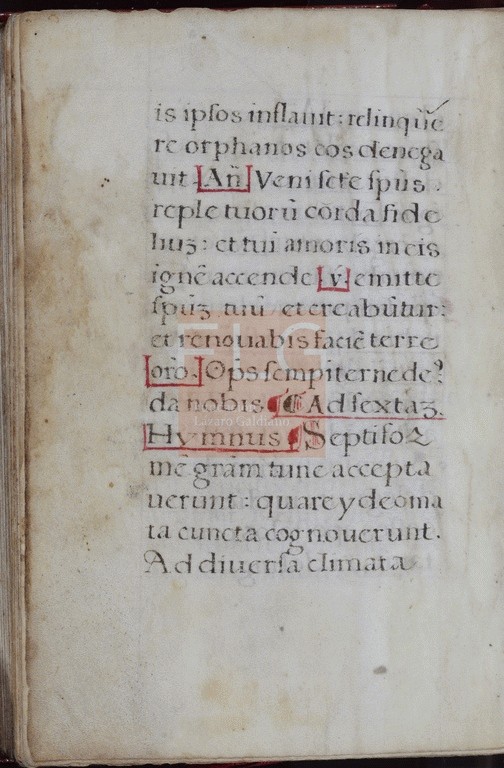 is ipsos inflauit: relinque
re orphanos eos denega
uit. An̄ Veni scte sp̄us.
reple tuorū corda fide
liuʒ: et tui amoris in eis
ignē accende v̄. emitte
sp̄uʒ tuū et creabūtur:
et renouabis faciē terre
or̄o. Op̄s sempiterne de?
da nobis ¶ Ad sextaʒ
Hymnus ¶ Septifoꝛ
mē gram tunc accepta
uerunt: quare ydeoma
ta cuncta cognouerunt.
Ad diuersa climata
FLG
Lázaro Galdiano